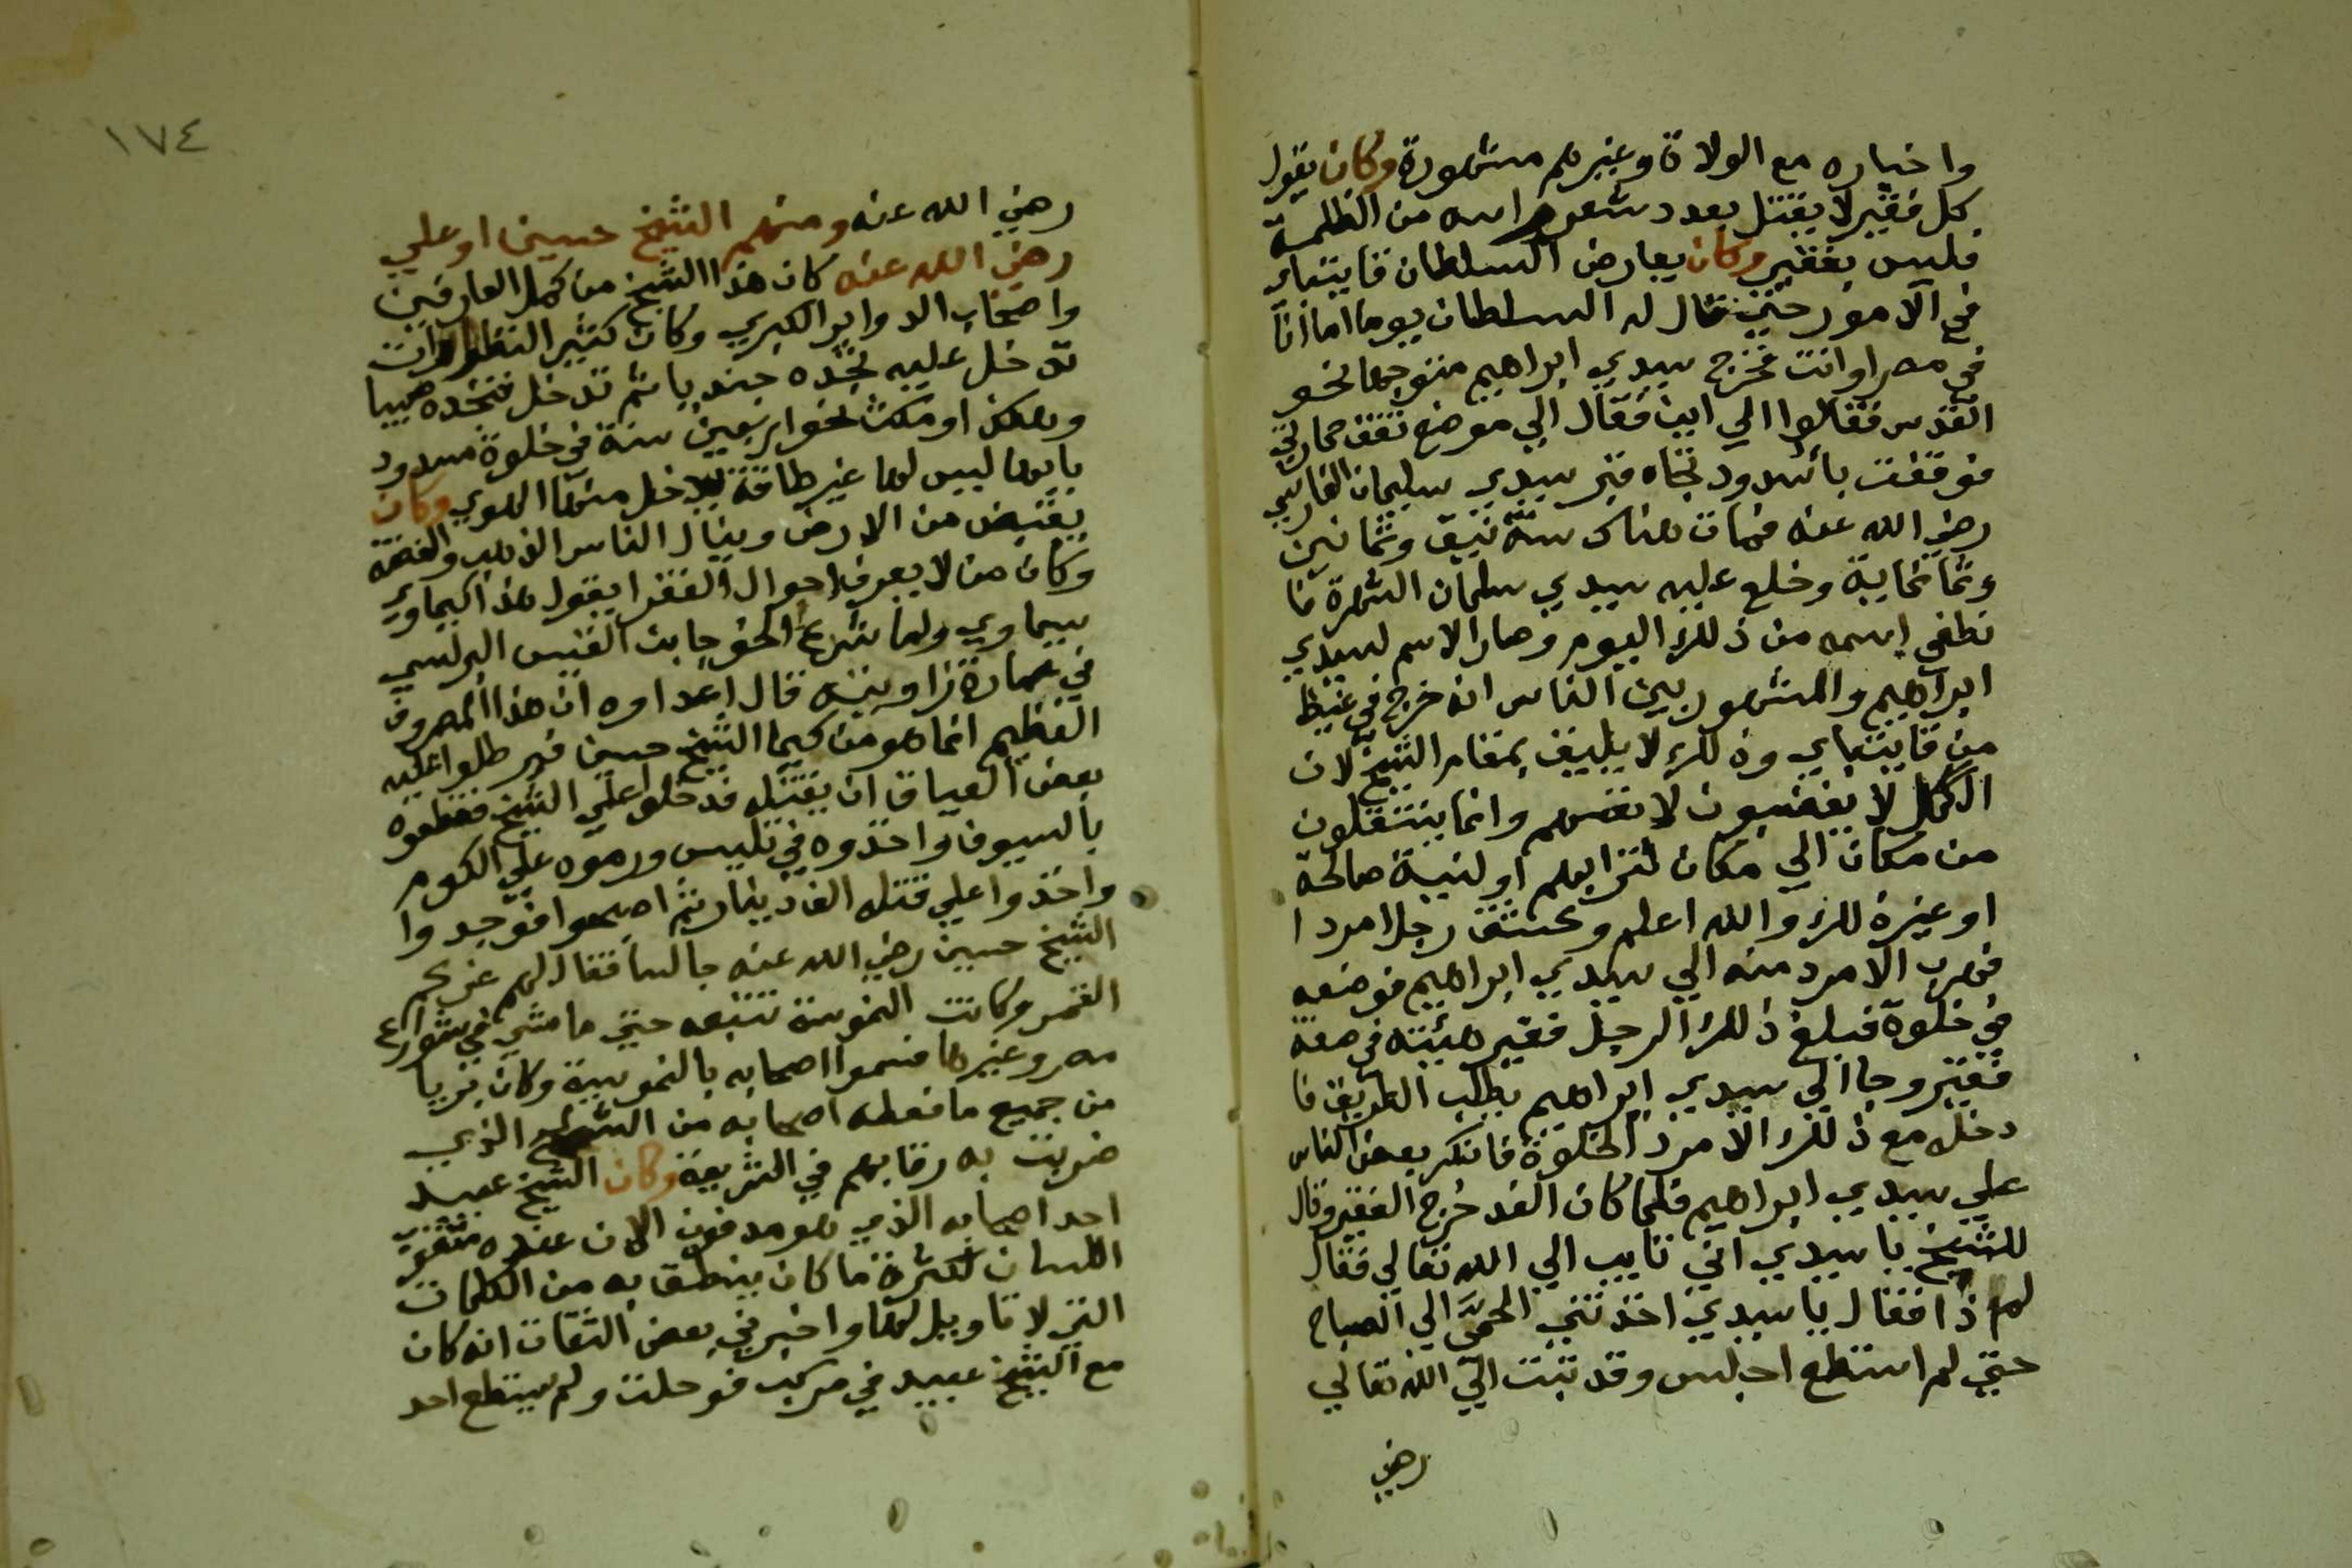 واخباره مع الولاة وغيرهم مشهورة وكان يقول
كل فقير لا يقتل بعدد شعر راسه من الظلمة
فليس بفقير وكان يعارض السلطان قايتباي
في الامور حتي قال له السلطان يوما اما انا
في مصر او انت فخرج سيدي ابراهيم متوجها نحو
القدس فقالوا الي اين فقال الي موضع تقف حمارتي
فوقفت باسدود تجاه قبر سيدي سليمان الفارسي
رضي الله عنه فمات هناك سنة نيف وثمانين
وثمانماية وخلع عليه سيدي سلمان الشهرة فا
نطفي اسمه من ذلك اليوم وصار الاسم لسيدي
ابراهيم والمشهور بين الناس انه خرج في غيظ
من قايتباي وذلك لا يليق بمقام الشيخ لان
الكمل لا يغضبون لانفسهم وانما ينتقلون
من مكان الي مكان لترابهم او لنية صالحة
او غير ذلك والله اعلم وعشق رجل امردا
فهرب الامرد منه الي سيدي ابراهيم فوضعه
في خلوة فبلغ ذلك الرجل فغير هيئته في صفة
فقير وجا الي سيدي ابراهيم يطلب الطريق فا
دخله مع ذلك الامرد الخلوة فانكر بعض الناس
علي سيدي ابراهيم فلما كان الغد خرج الفقير وقال
للشيخ يا سيدي اني تايب الي الله تعالي فقال
لم ذا فقال يا سيدي اخذتني الحمى الي الصباح
حتي لم استطع اجلس وقد تبت الي الله تعالي
رضي
١٧٤
رضي الله عنه ومنهم الشيخ حسين ابو علي
رضي الله عنه كان هذا الشيخ من كمل العارفين
واصحاب الدواير الكبري وكان كثير التطورات
تدخل عليه تجده جنديا ثم تدخل فتجده صبيا
وهكذا ومكث نحو اربعين سنة في خلوة مسدود
بابها ليس لها غير طاقة يدخل منها الهوي وكان
يقبض من الارض ويناول الناس الذهب والفضة
وكان من لا يعرف احوال الفقرا يقول هذا كيماوي
سيماوي ولما شرع الخواجا بن القنيس البرلسي
في عمارة زاويته قال اعداوه ان هذا المصروف
العظيم انما هو من كيما الشيخ حسين فبرطلوا عليه
بعض العياق ان يقتله فدخلوا علي الشيخ فقطعوه
بالسيوف واخذوه في تليس ورموه علي الكوم
واخذوا علي قتله الف دينار ثم اصبحوا فوجدوا
الشيخ حسين رضي الله عنه جالسا فقال لهم غركم
القمر وكانت النموسة تتبعه حيثما مشي في شوارع
مصر وغيرها فسموا اصحابه بالنموسية وكان بريا
من جميع ما فعله اصحابه من الشطح الذي
ضربت به رقابهم في الشريعة وكان الشيخ عبيد
احد اصحابه الذي هو مدفون الان عنده مثقوب
اللسان لكثرة ما كان ينطق به من الكلمات
التي لا تاويل لها واخبرني بعض الثقات انه كان
مع الشيخ عبيد في مركب فوحلت ولم يستطع احد